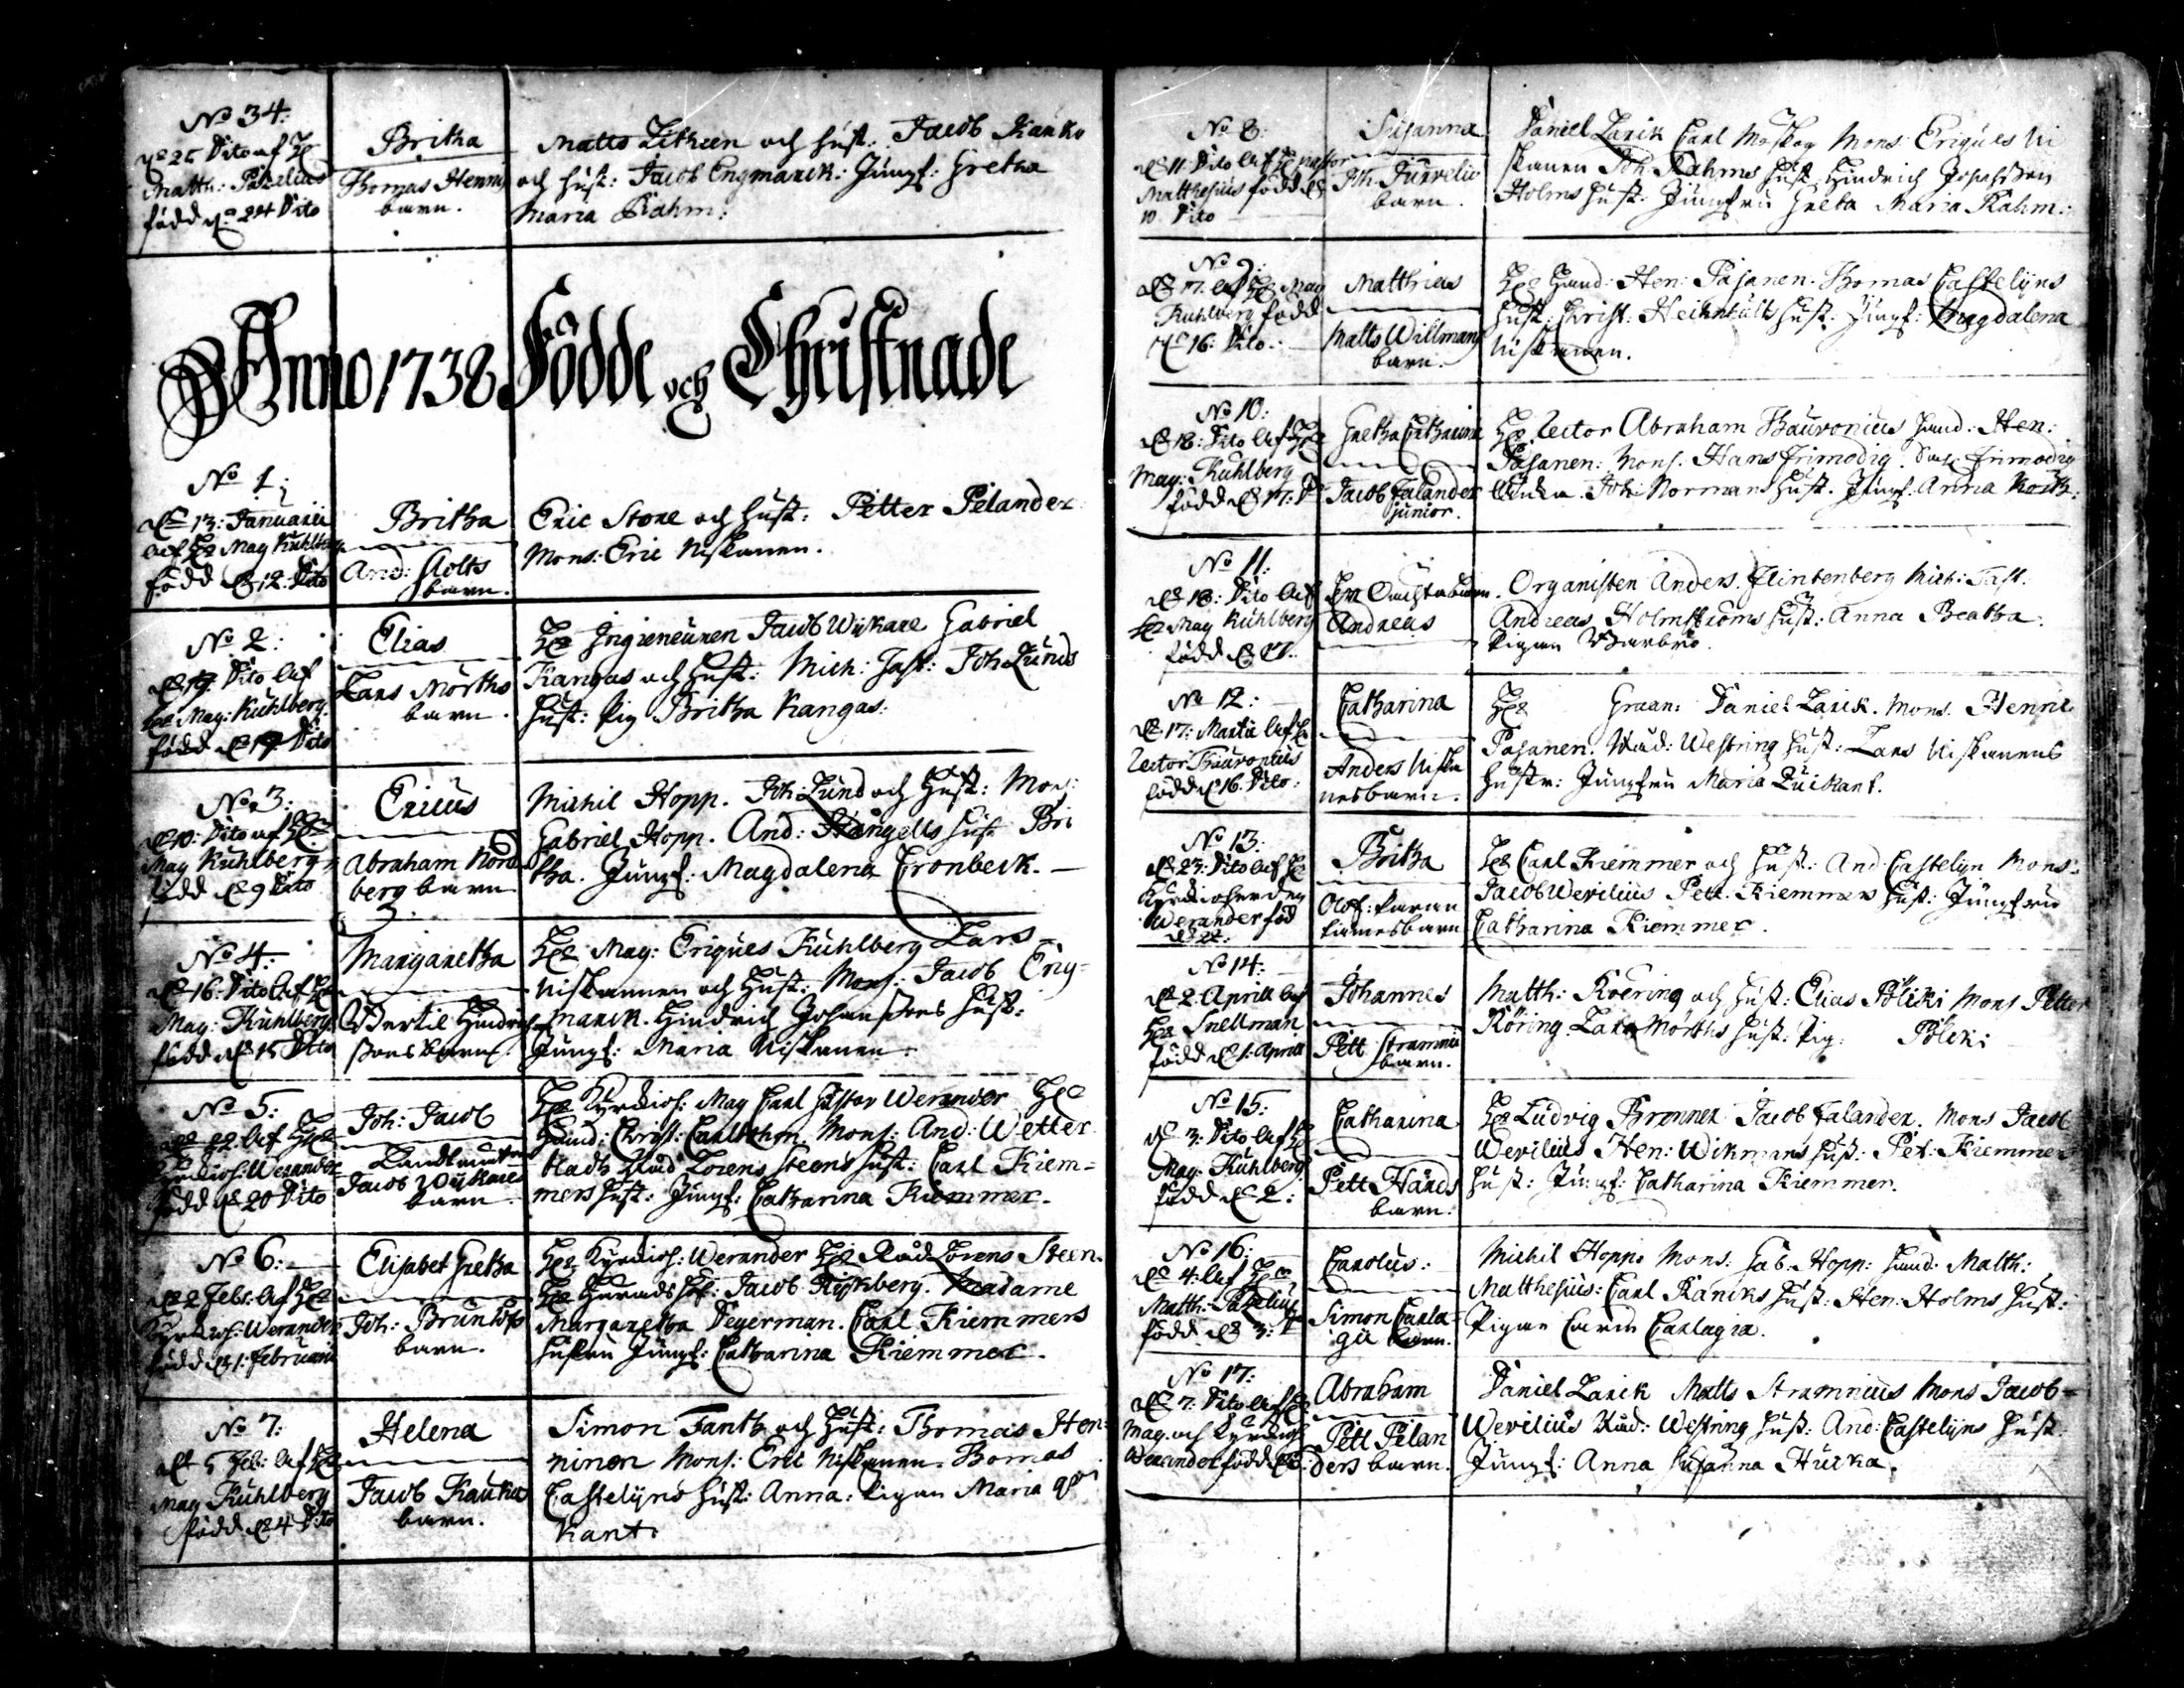 No 34:
d: 25 Dito af H:
Matth: Pazelius
född d: 24 Dito
Britha
Thomas Hennig
barn.
Matts Litheen och hust: Jacob Kauko
och hust: Jacob Engmarck: Jungf: Gretha
Maria Rahm:
Anno 1738 Födde och Christnade
No 1:
d: 13: Januarii
af H: Mag Kuhlberg
född d: 12: Dito
Britha
And: Holts
barn.
Eric Stone och hust: Petter Pelander
Mons: Eric Niskanen.
No 2:
d: 19: Dito af
H: Mag: Kuhlberg.
född d: 19 Dito
Elias
Lars Mörths
barn.
H: Ingieneuren Jacob Wijkare Gabriel
Kangas och hust: Mich: Fast: Joh Lunds
hust: Pig Britha Kangas:
No 3:
d: 10: Dito af H:
Mag Kuhlberg
född d: 9 Dito
Ericus
Abraham Nord
berg barn
Michil Hopp. Joh: Lund och Hust: Mons:
Gabriel Hopp. And: Stångells hust Bri
tha. Jungf: Magdalena Cronbeck.
No 4:
d: 16: Dito af H:
Mag: Kuhlberg
född d: 15 Dito
Margaretha
Bertil Hindrich
sons barn.
H: Mag: Eriques Kuhlberg Lars
Niskannen och Hust: Mons: Jacob Eng-
marck. Hindrich Johanssons hust:
Jungf: Maria Niskanen.
No 5:
d: 22: af H:
Kyrckioh: Werander
född d: 20 Dito
Joh: Jacob
Landtmäter
Jacob Wijkares
barn
H: Kyrckioh: Mag Carl Gustav Werander H:
Hand: Christ: Carlbohm. Mons: And: Wetter
bladh Råd Lorens Steens hust: Carl Kiem-
mers hust: Jungf: Catharina Kiemmer.
No 6:
d: 2 Feb: af H:
Kyrckioh: Werander
född d: 1: Februarii
Elisabet Gretha
Joh: Brunlöfs
barn.
H: Kyrckioh: Werander H: Råd Lorens Steen.
H: Häradsh: Jacob Rijkberg. Madame
Margaretha Degerman. Carl Kiemmers
hustru Jungf: Catharina Kiemmer.
No 7:
d: 5 Feb: af H:
Mag Kuhlberg
född d: 4 Dito
Helena
Jacob Kauko
barn.
Simon Fanth och Hust: Thomas Hen-
ninen Mons: Eric Niskanen. Thomas
Castelijns hust: Anna: Pigan Maria Qui
kant.
No 8:
d: 11: Dito af H: Pastor
Matthesius född d:
10. Dito
Susanna
Joh. Jurvelius
barn.
Daniel Larik Carl Moskog Mons: Eriques Ni
skanen Joh: Rahms hust Hindrich Josephsson
Holms hust. Jungfru Greta Maria Rahm.
No 9:
d: 17. af H: Mag
Kuhlberg född
d: 16: Dito.
Matthias
Matts Willmans
barn.
H: Hand: Hen: Pasanen. Thomas Castelijns
hust: Christ: Heikhults hust: Jungf: Magdalena
Niskanen.
No 10:
d: 18: Dito af H:
Mag: Kuhlberg
född d: 17: D
Gretha Catharina
Jacob Falander
junior.
H: Lector Abraham Thauronius Hand: Hen:
Pasanen: Mons: Hans Frimodig. Frimodig
Enka. Joh: Normans hust. Jungf. Anna Mörth.
No 11:
d: 18: Dito af
H: Mag Kuhlberg
född d: 17.
En Oächta barn.
Andreas
Organisten Anders. Flintenberg Mich: Fast.
Andreas Holmströms hust: Anna Beatha.
Pigan Barbro.
No 12:
d: 17: Martii af H:
Lector Thauronius
född d 16. Dito:
Catharina
Anders Niska
nes barn.
H: Graan: Daniel Larik. Mons. Henric
Pasanen. Råd: Westring hust: Lars Niskanens
hustru: Jungfru Maria Quikant.
No 13:
d: 23: Dito af H:
Kyrckioherden
Werander föd
d: 22:
Britha
Olof: Karan
kames barn
H: Carl Kiemmer och hust: And Castelijn Mons:
Jacob Werilius Pett. Kiemmers hust: Jungfru
Catharina Kiemmer.
No 14:
d: 2. Aprill af
H: Snellman
född d: 1: Aprill
Johannes
Pett Stramnii
barn.
Matth: Röering och hust: Elias Pöliki Mons Petter
Röring. Lars Mörths hust: Pig: Pöliki
No 15:
d: 3: Dito af H:
Mag: Kuhlberg
född d: 2:
Catharina
Pett Hards
barn.
H: Ludvig Brenner Jacob Falander. Mons Jacob
Werilius Hen: Wikmans hust: Pet: Kiemmers
hust: Jungf: Catharina Kiemmer.
No 16:
d: 4: af H:
Matth: Pazelius
född d: 3:
Carolus:
Simon Carla-
gii barn.
Michil Hopps Mons: Gab: Hopp: Hand: Matth:
Matthesius: Carl Raniks hust: Hen: Holms hust:
Pigan Carin Carlagia.
No 17:
d: 7: Dito af H:
Mag och Kyrckioh
Werander född d: 6:
Abraham
Pett Pelan
ders barn.
Daniel Larik Matts Stramnius Mons Jacob
Werilius Råd: Westring hust: And: Castelijns hust
Jungf: Anna Susanna Hurka.